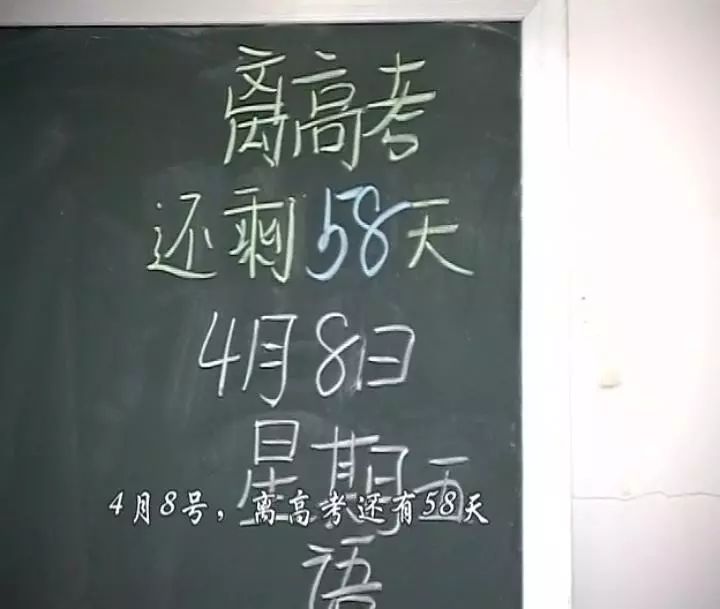 离高考
还剩58天
4月8日
星期五
4月8号，离高考还有58天
语